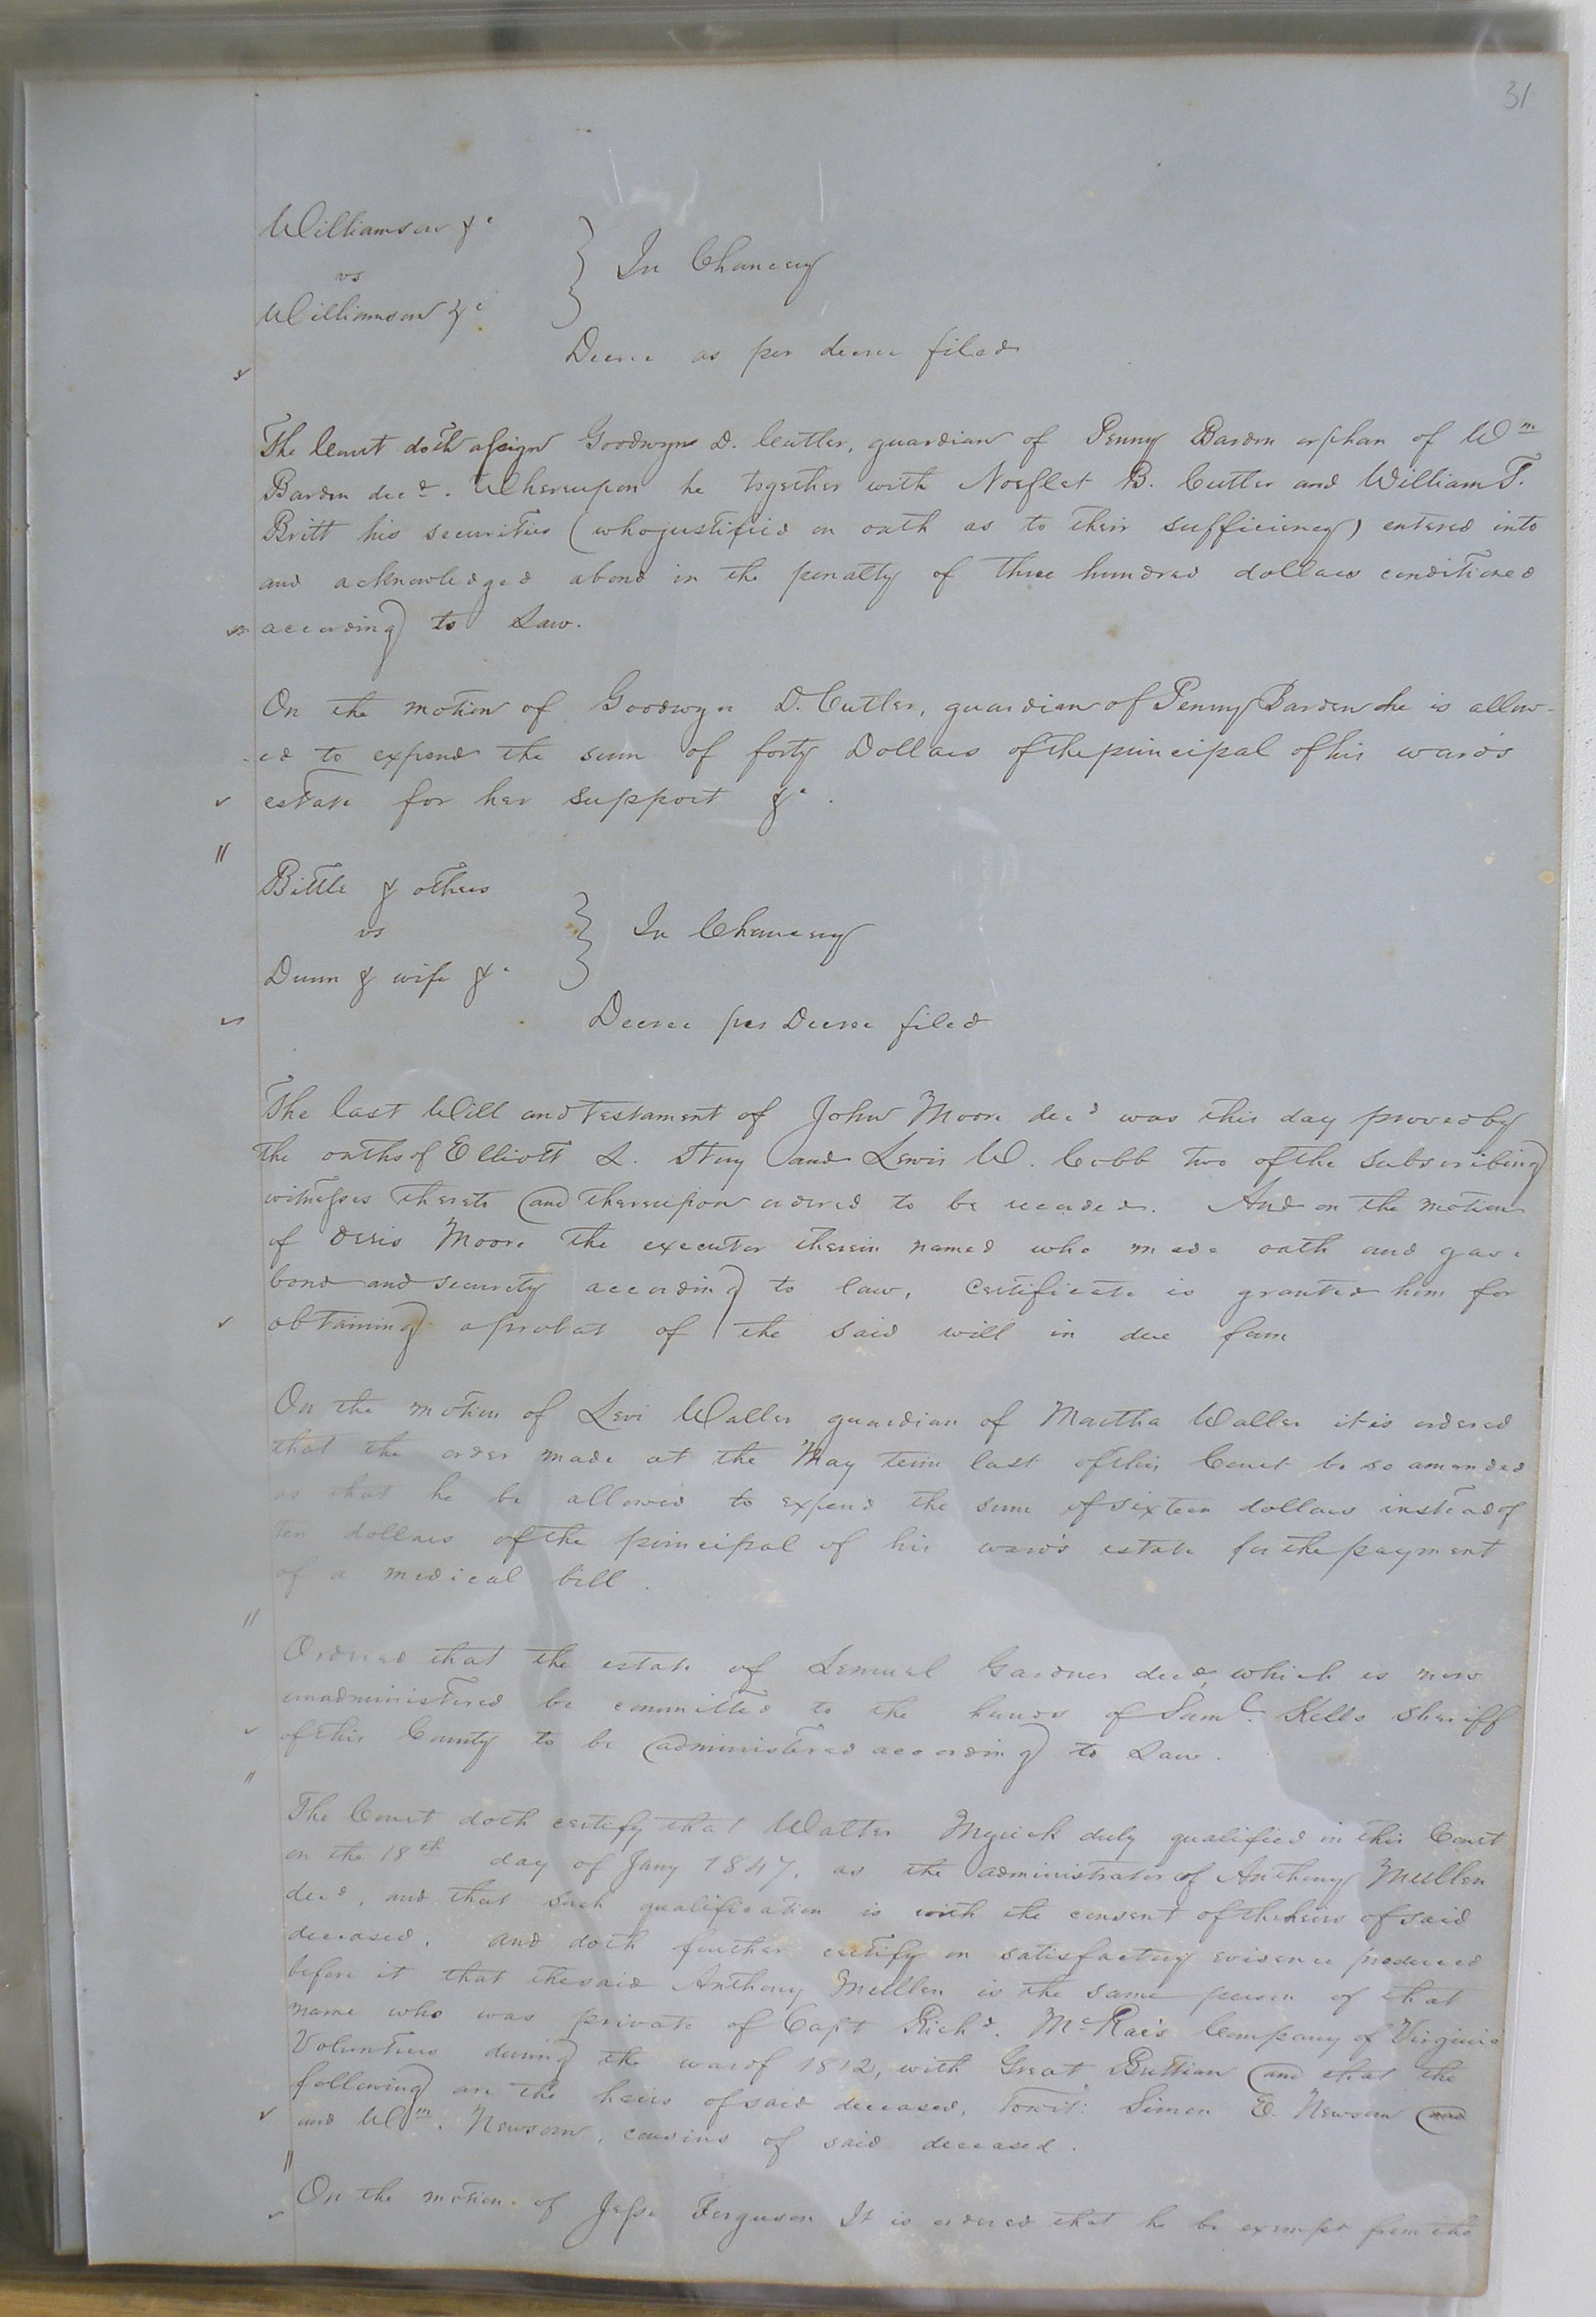 31
Williamson &c
vs
Williamson &c
In Chancery
Decree as per decree filed
The Court doth assign Goodwyn D. Cutler, guardian of Penny Barden orphan of Wm
Barden decd. Whereupon he together with Norflet B. Cutler and William T.
Britt his securities (who justified on oath as to their sufficiency) entered into
and acknowledged a bond in the penalty of three hundred dollars conditioned
according to Law.
On the motion of Goodwyn D. Cutler, guardian of Penny Barden he is allow-
-ed to expend the sum of forty Dollars of the principal of his ward's
estate for her support &c.
Bittle & others
vs
Dunn & wife &c
In Chancery
Decree per Decree filed
The last Will and testament of John Moore decd was this day proved by
the oaths of Elliott L. Story and Lewis W. Cobb two of the subscribing
witnesses thereto and thereupon ordered to be recorded. And on the motion
of Orris Moore the executor therein named who made oath and gave
bond and security according to law, certificate is granted him for
obtaining a probat of the said will in due form
On the motion of Levi Waller guardian of Martha Waller it is ordered
that the order made at the May term last of this Court be so amended
as that he be allowed to expend the sum of sixteen dollars instead of
ten dollars of the principal of his ward's estate for the payment
of a medical bill.
Ordered that the estate of Lemuel Gardner decd, which is now
unadministered be committed to the hands of Saml. Kello Sheriff
of this County to be administered according to Law.
The Court doth certify that Walter Myrick duly qualified in this Court
on the 18th day of Jany 1847, as the administrator of Anthony Mullen
decd, and that such qualification is with the consent of the heirs of said
deceased, and doth further certify on satisfactory evidence produced
before it that the said Anthony Mullen is the same person of that
name who was private of Capt Richd. McRae's Company of Virginia
Volunteers during the war of 1812, with Great Brittian and that the
following are the heirs of said deceased, Towit: Simon E. Newsom and
and Wm. Newsom, cousins of said deceased.
On the motion of Jesse Ferguson It is ordered that he be exempt from the